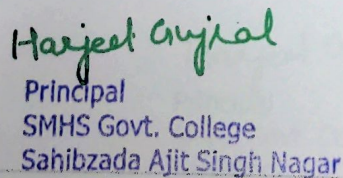 Harjeet Gujral
Principal
SMHS Govt. College
Sahibzada Ajit Singh Nagar